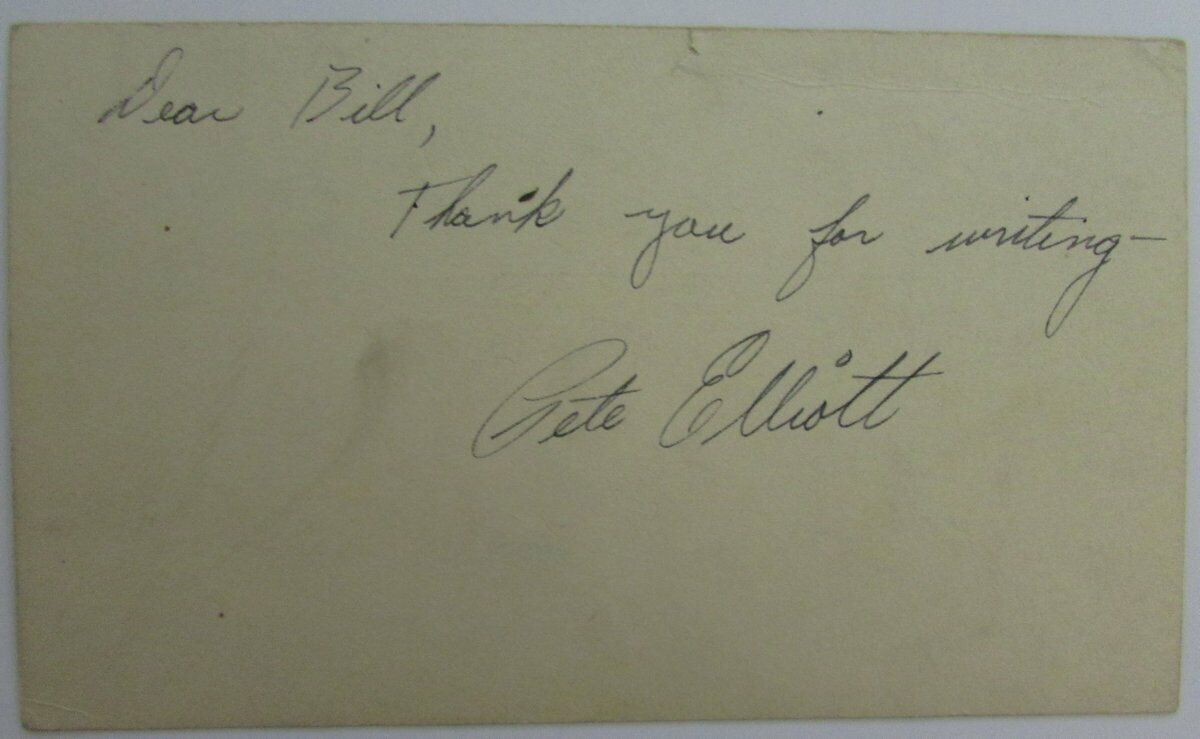 Dear Bill,
Thank you for writing-
Pete Elliott